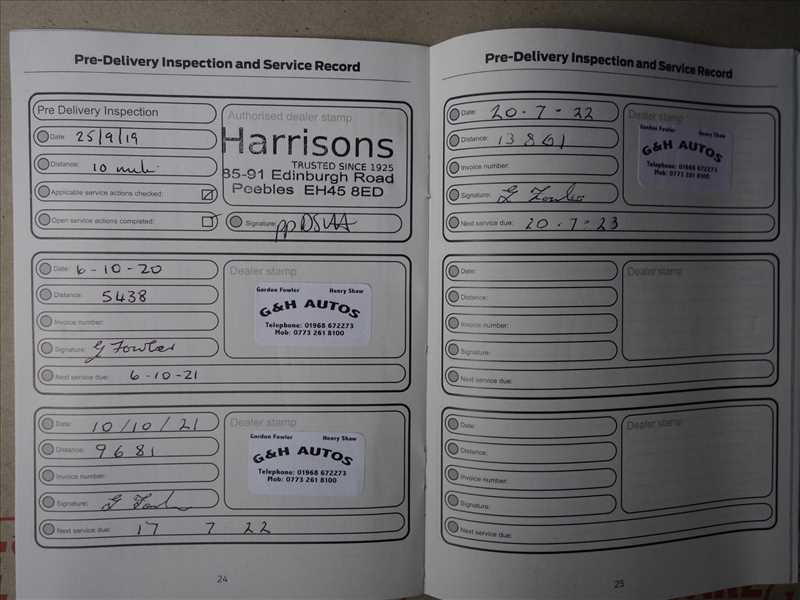 Pre-Delivery Inspection and Service Record
Pre Delivery Inspection
Date: 25/9/19
Distance: 10 mile
Applicable service actions checked:
Open service actions completed:
Authorised dealer stamp
Harrisons
TRUSTED SINCE 1925
85-91 Edinburgh Road
Peebles EH45 8ED
Signature:
Date: 6-10-20
Distance: 5438
Invoice number:
Signature: G Fowler
Next service due: 6-10-21
Dealer stamp
Gordon Fowler Henry Shaw
G&H AUTOS
Telephone: 01968 672273
Mob: 0773 261 8100
Date: 10/10/21
Distance: 9681
Invoice number:
Signature: G Fowler
Next service due: 17 7 22
Dealer stamp
Gordon Fowler Henry Shaw
G&H AUTOS
Telephone: 01968 672273
Mob: 0773 261 8100
24
Pre-Delivery Inspection and Service Record
Date: 20-7-22
Distance: 13861
Invoice number:
Signature: G Fowler
Next service due: 20-7-23
Dealer stamp
Gordon Fowler Henry Shaw
G&H AUTOS
Telephone: 01968 672273
Mob: 0773 261 8100
Date:
Distance:
Invoice number:
Signature:
Next service due:
Dealer stamp
Date:
Distance:
Invoice number:
Signature:
Next service due:
Dealer stamp
25